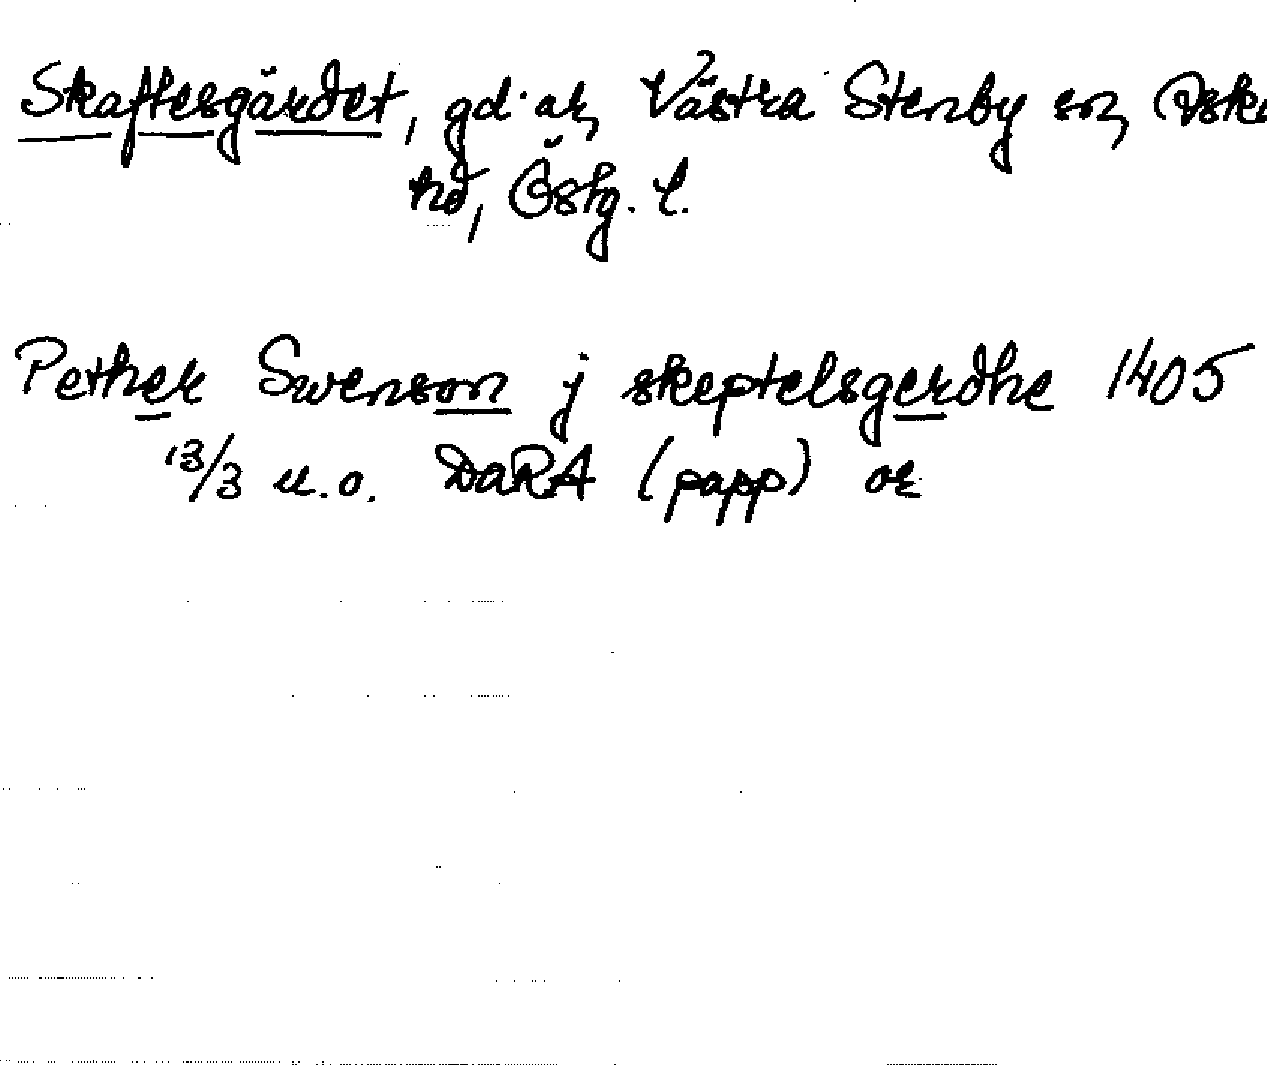 Skaftesgärdet, gd. ar, Västra Stenby sn, Aska
hd, Östg. l.
Pether Swenson j skeptelsgerdhe 1405
13/3 u.o. DaRA (papp) or